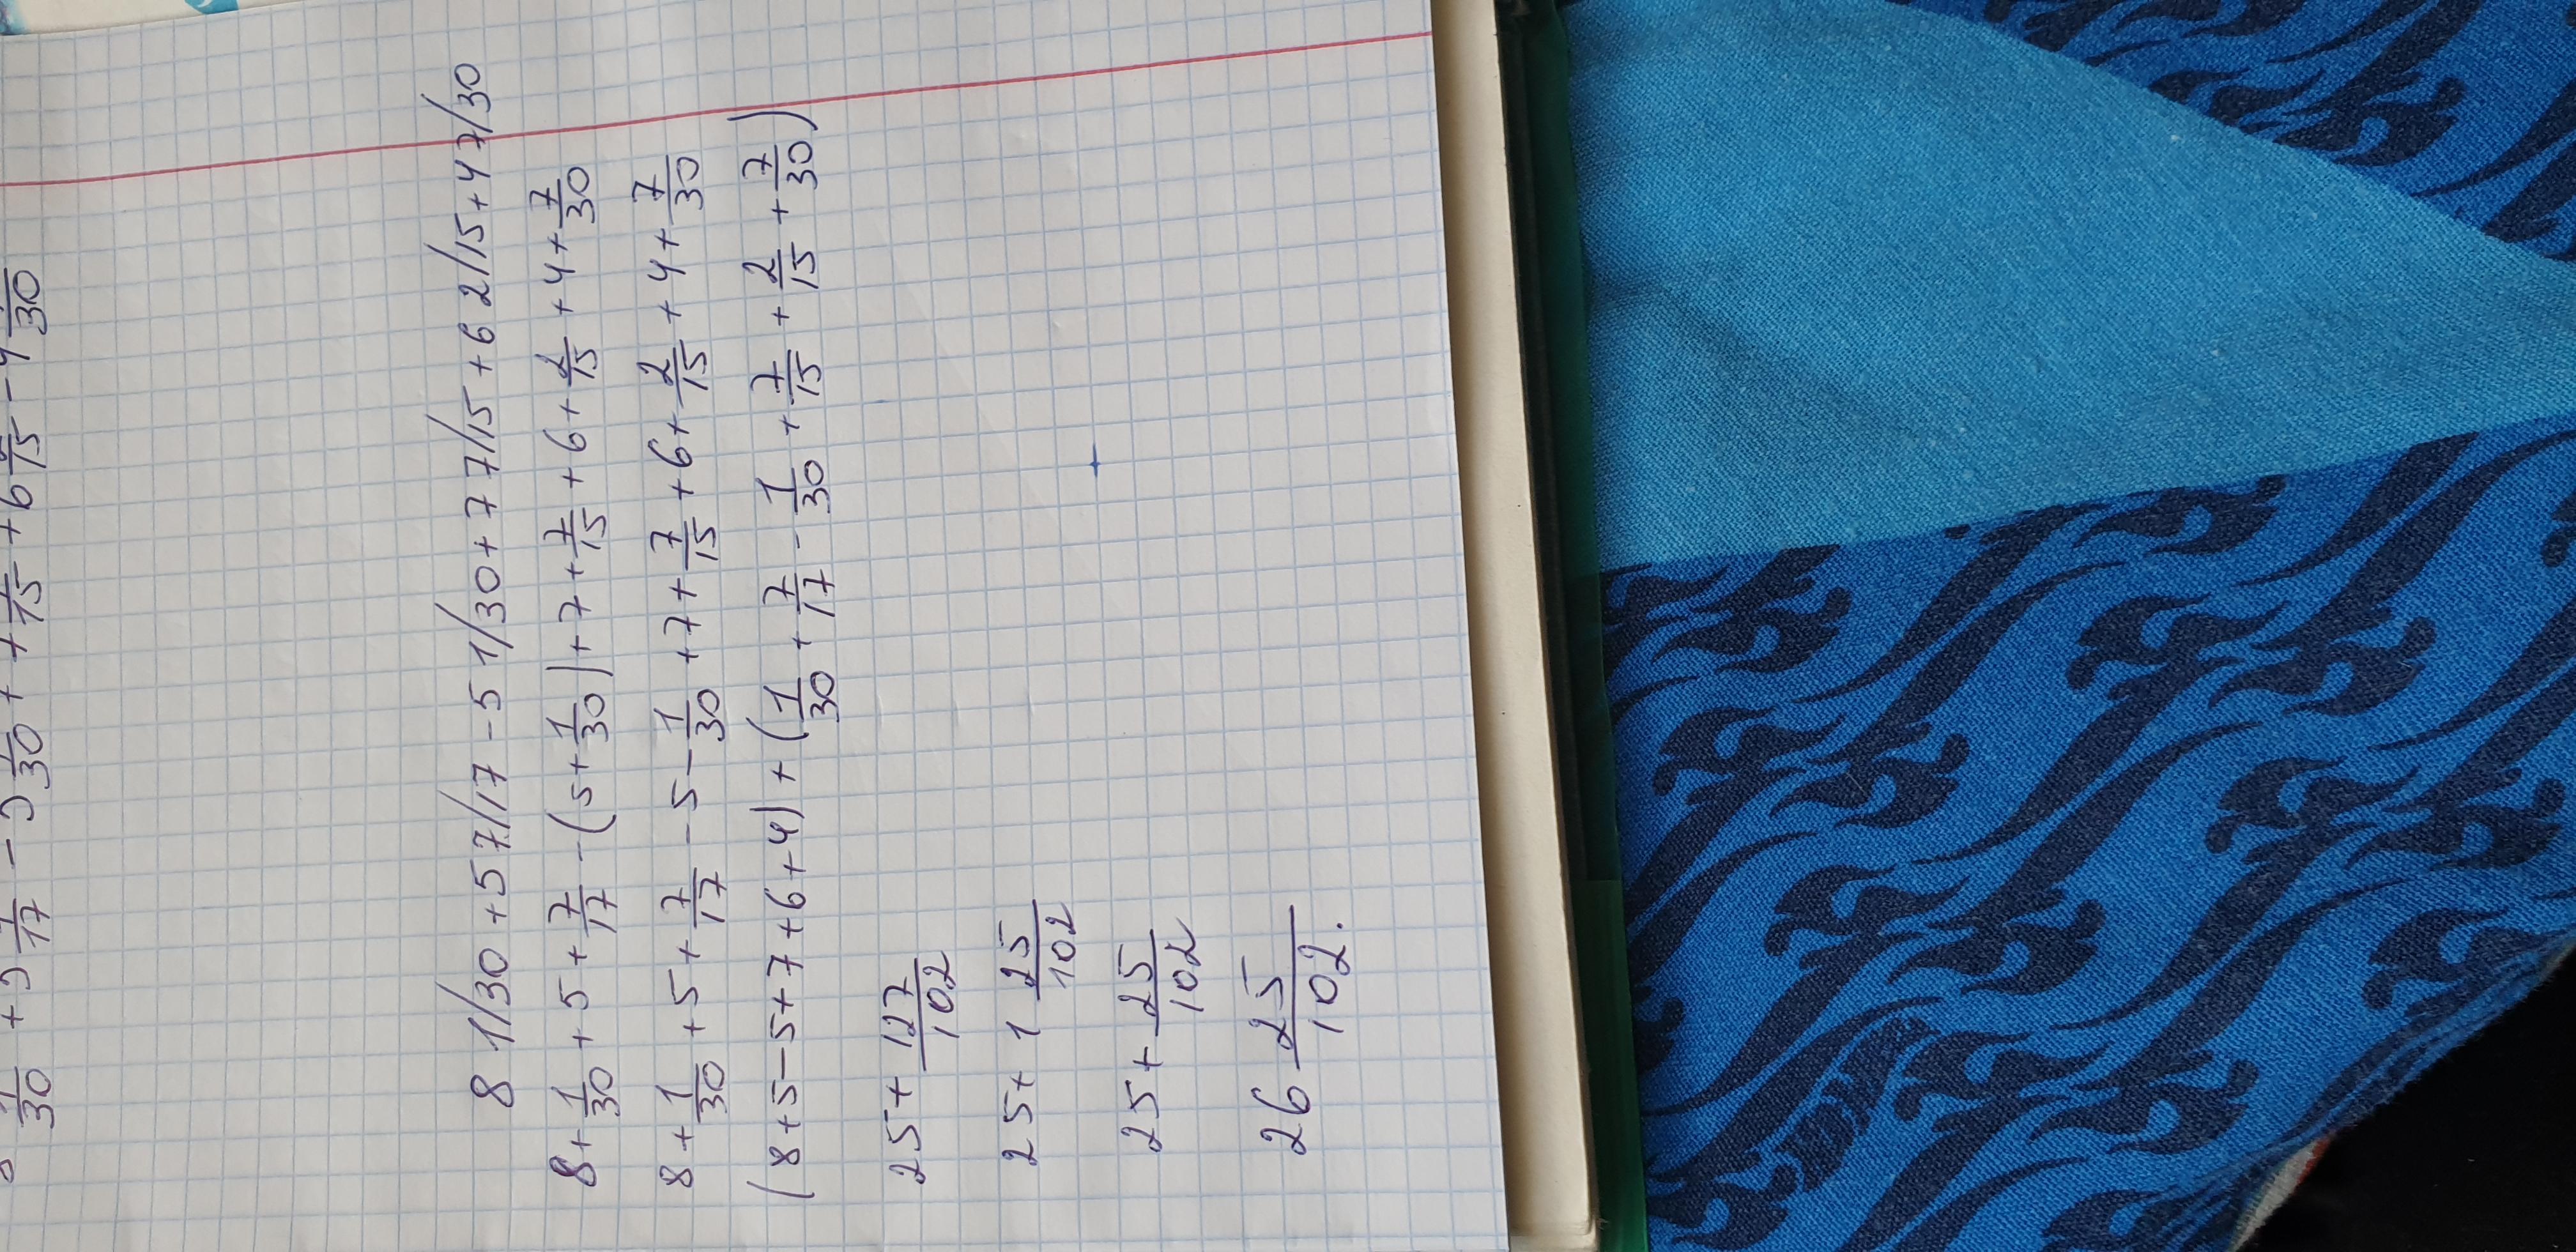 8 1/30 + 5 7/17 - 5 1/30 + 7 7/15 + 6 2/15 - 4 7/30
8 1/30 + 5 7/17 - 5 1/30 + 7 7/15 + 6 2/15 + 4 7/30
8 + 1/30 + 5 + 7/17 - (5 + 1/30) + 7 + 7/15 + 6 + 2/15 + 4 + 7/30
8 + 1/30 + 5 + 7/17 - 5 - 1/30 + 7 + 7/15 + 6 + 2/15 + 4 + 7/30
(8 + 5 - 5 + 7 + 6 + 4) + (1/30 + 7/17 - 1/30 + 7/15 + 2/15 + 7/30)
25 + 127/102
25 + 1 25/102
25 + 25/102
26 25/102.